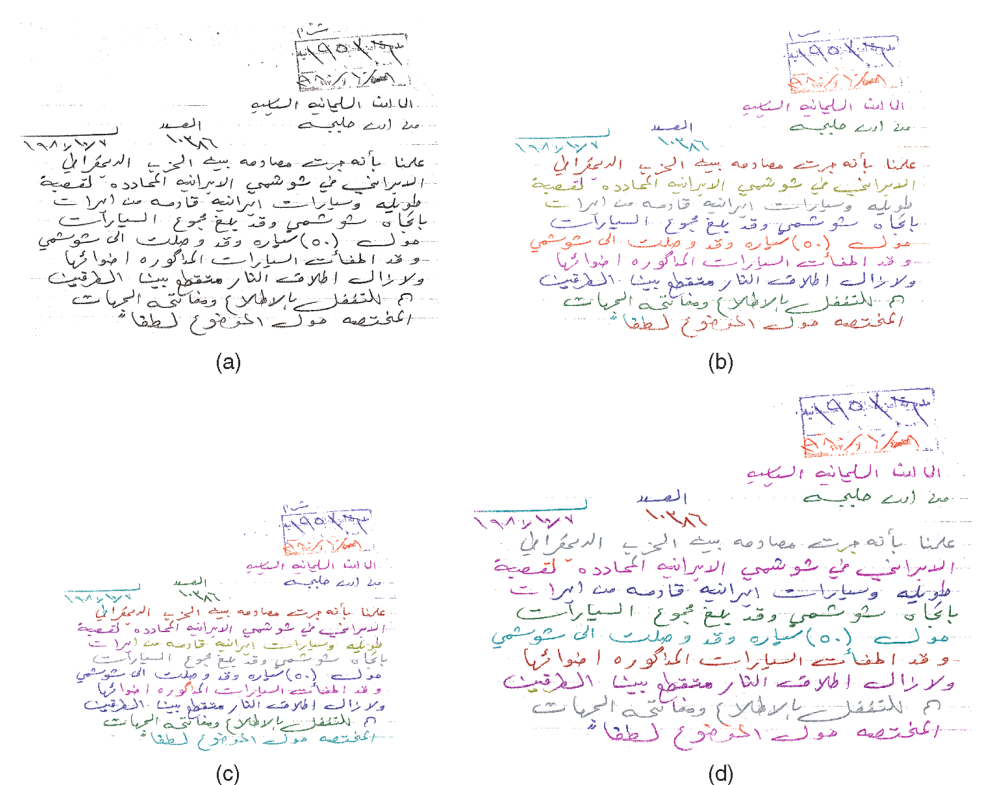 امن السليمانيه
من امن حلبجه
العدد
١٠٣٨٦
علمنا بأنه جرت مصادمه بين الحزب الديمقراطي
الايراني في شوشمي الايرانيه المحادده لقصبة
طويله وسيارات ايرانيه قادمه من
باتجاه شوشمي وقد بلغ مجموع السيارات
حول (٥٠) سياره وقد وصلت الى شوشمي
وقد اطفأت السيارات المذكوره اضوائها
ولازال اطلاق النار متقطع بين الطرفين
للتفضل بالاطلاع ومفاتحة الجهات
المختصه حول الموضوع لطفاً
(a)
امن السليمانيه
من امن حلبجه
العدد
١٠٣٨٦
علمنا بأنه جرت مصادمه بين الحزب الديمقراطي
الايراني في شوشمي الايرانيه المحادده لقصبة
طويله وسيارات ايرانيه قادمه من
باتجاه شوشمي وقد بلغ مجموع السيارات
حول (٥٠) سياره وقد وصلت الى شوشمي
وقد اطفأت السيارات المذكوره اضوائها
ولازال اطلاق النار متقطع بين الطرفين
للتفضل بالاطلاع ومفاتحة الجهات
المختصه حول الموضوع لطفاً
(b)
امن السليمانيه
من امن حلبجه
العدد
١٠٣٨٦
علمنا بأنه جرت مصادمه بين الحزب الديمقراطي
الايراني في شوشمي الايرانيه المحادده لقصبة
طويله وسيارات ايرانيه قادمه من
باتجاه شوشمي وقد بلغ مجموع السيارات
حول (٥٠) سياره وقد وصلت الى شوشمي
وقد اطفأت السيارات المذكوره اضوائها
ولازال اطلاق النار متقطع بين الطرفين
للتفضل بالاطلاع ومفاتحة الجهات
المختصه حول الموضوع لطفاً
(c)
امن السليمانيه
من امن حلبجه
العدد
١٠٣٨٦
علمنا بأنه جرت مصادمه بين الحزب الديمقراطي
الايراني في شوشمي الايرانيه المحادده لقصبة
طويله وسيارات ايرانيه قادمه من
باتجاه شوشمي وقد بلغ مجموع السيارات
حول (٥٠) سياره وقد وصلت الى شوشمي
وقد اطفأت السيارات المذكوره اضوائها
ولازال اطلاق النار متقطع بين الطرفين
للتفضل بالاطلاع ومفاتحة الجهات
المختصه حول الموضوع لطفاً
(d)